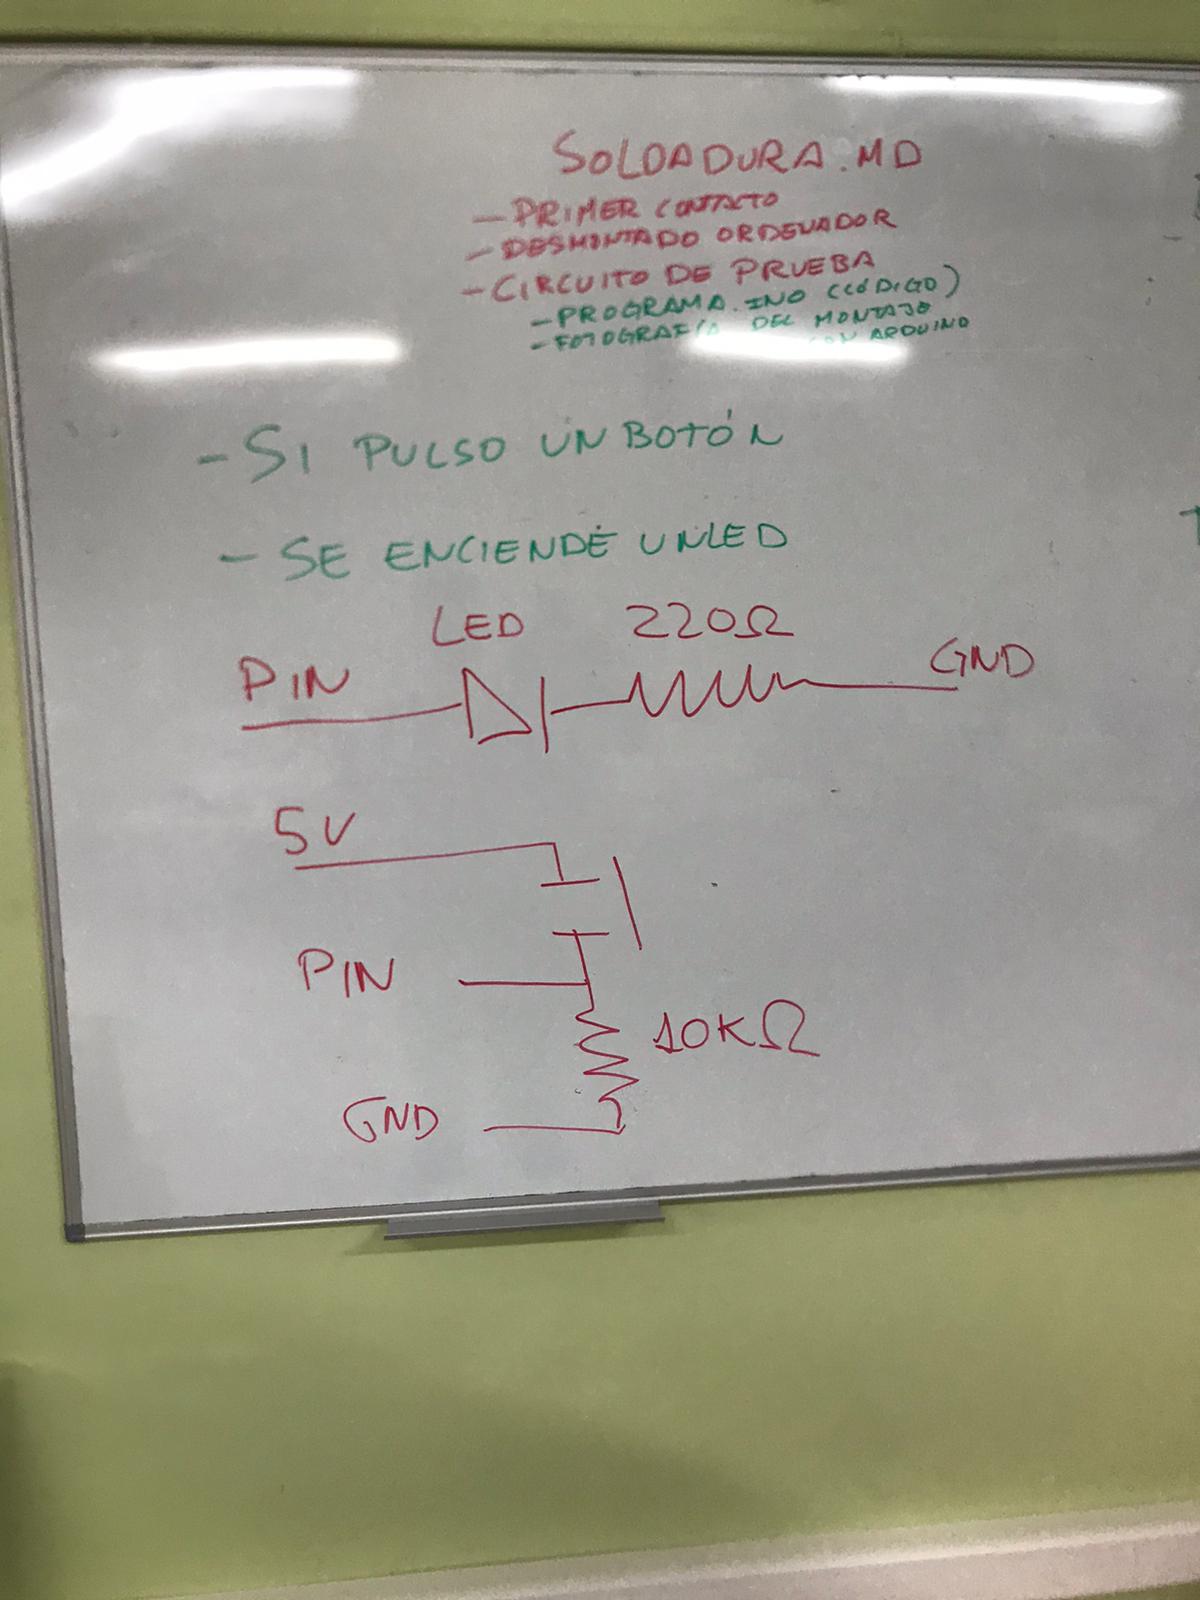 SOLDADURA.MD
- PRIMER CONTACTO
- DESMONTADO ORDENADOR
- CIRCUITO DE PRUEBA
- PROGRAMA.INO (CÓDIGO)
- FOTOGRAFÍA DEL MONTAJE
CON ARDUINO
- SI PULSO UN BOTÓN
- SE ENCIENDE UN LED
LED 220Ω
PIN GND
5V
PIN
10KΩ
GND